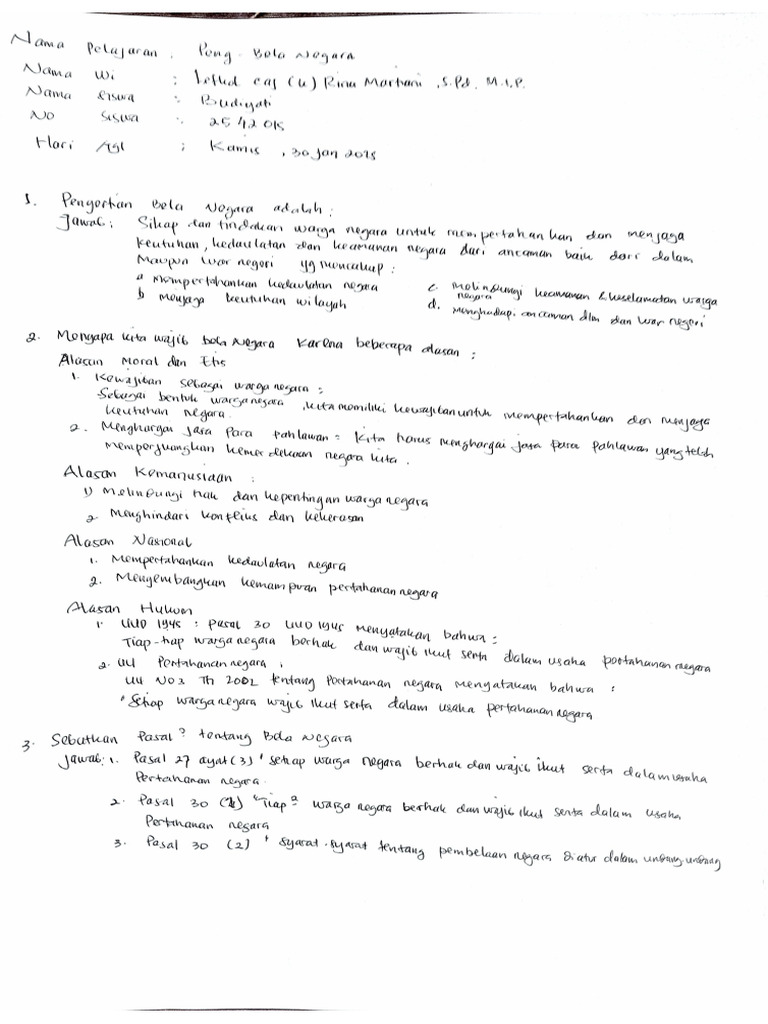 Nama Pelajaran . Peng - Bela Negara
Nama Wi : Letkol caj (K) Rina Martiani, S.Pd. M.I.P.
Nama siswa : Budiyati
No siswa : 2542015
Hari /tgl : Kamis , 30 Jan 2025
1. Pengertian Bela Negara adalah :
Jawab : Sikap dan tindakan warga negara untuk mempertahankan dan menjaga
keutuhan, kedaulatan dan keamanan negara dari ancaman baik dari dalam
Maupun luar negeri yg mencakup :
a mempertahankan kedaulatan negara
b menjaga keutuhan wilayah
c. melindungi keamanan & keselamatan warga
negara
d. menghadapi ancaman dlm dan luar negeri
2. Mengapa kita wajib bela Negara karena beberapa alasan :
Alasan Moral dan Etis
1. Kewajiban sebagai warga negara :
Sebagai bentuk warga negara , kita memiliki kewajiban untuk mempertahankan dan menjaga
keutuhan negara.
2. Menghargai Jasa Para Pahlawan = kita harus menghargai jasa para pahlawan yang telah
memperjuangkan kemerdekaan negara kita .
Alasan Kemanusiaan :
1) Melindungi hak dan kepentingan warga negara
2 Menghindari konflius dan kekerasan
Alasan Nasional
1. Mempertahankan kedaulatan negara
2. Mengembangkan kemampuan pertahanan negara
Alasan Hukum
1. UUD 1945 : pasal 30 UUD 1945 menyatakan bahwa :
Tiap-tiap warga negara berhak dan wajib ikut serta dalam usaha pertahanan negara
2. UU Pertahanan negara ,
UU No 3 Th 2002 tentang Pertahanan negara menyatakan bahwa :
" Setiap warga negara wajib ikut serta dalam usaha pertahanan negara
3. Sebutkan Pasal² tentang Bela Negara
Jawab : 1. Pasal 27 ayat (3) " setiap warga negara berhak dan wajib ikut serta dalam usaha
Pertahanan negara.
2. Pasal 30 (1) "Tiap² warga negara berhak dan wajib ikut serta dalam usaha
Pertahanan negara
3. Pasal 30 (2) " syarat-syarat tentang pembelaan negara diatur dalam undang-undang